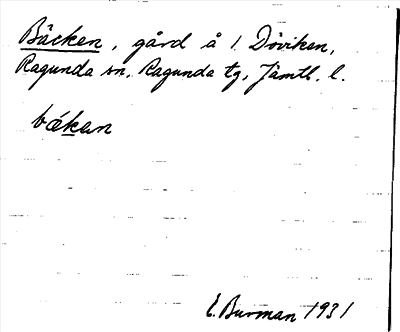 Bäcken, gård å 1 Döviken,
Ragunda sn, Ragunda tg, Jämtl. l.
bákan
E. Burman 1931